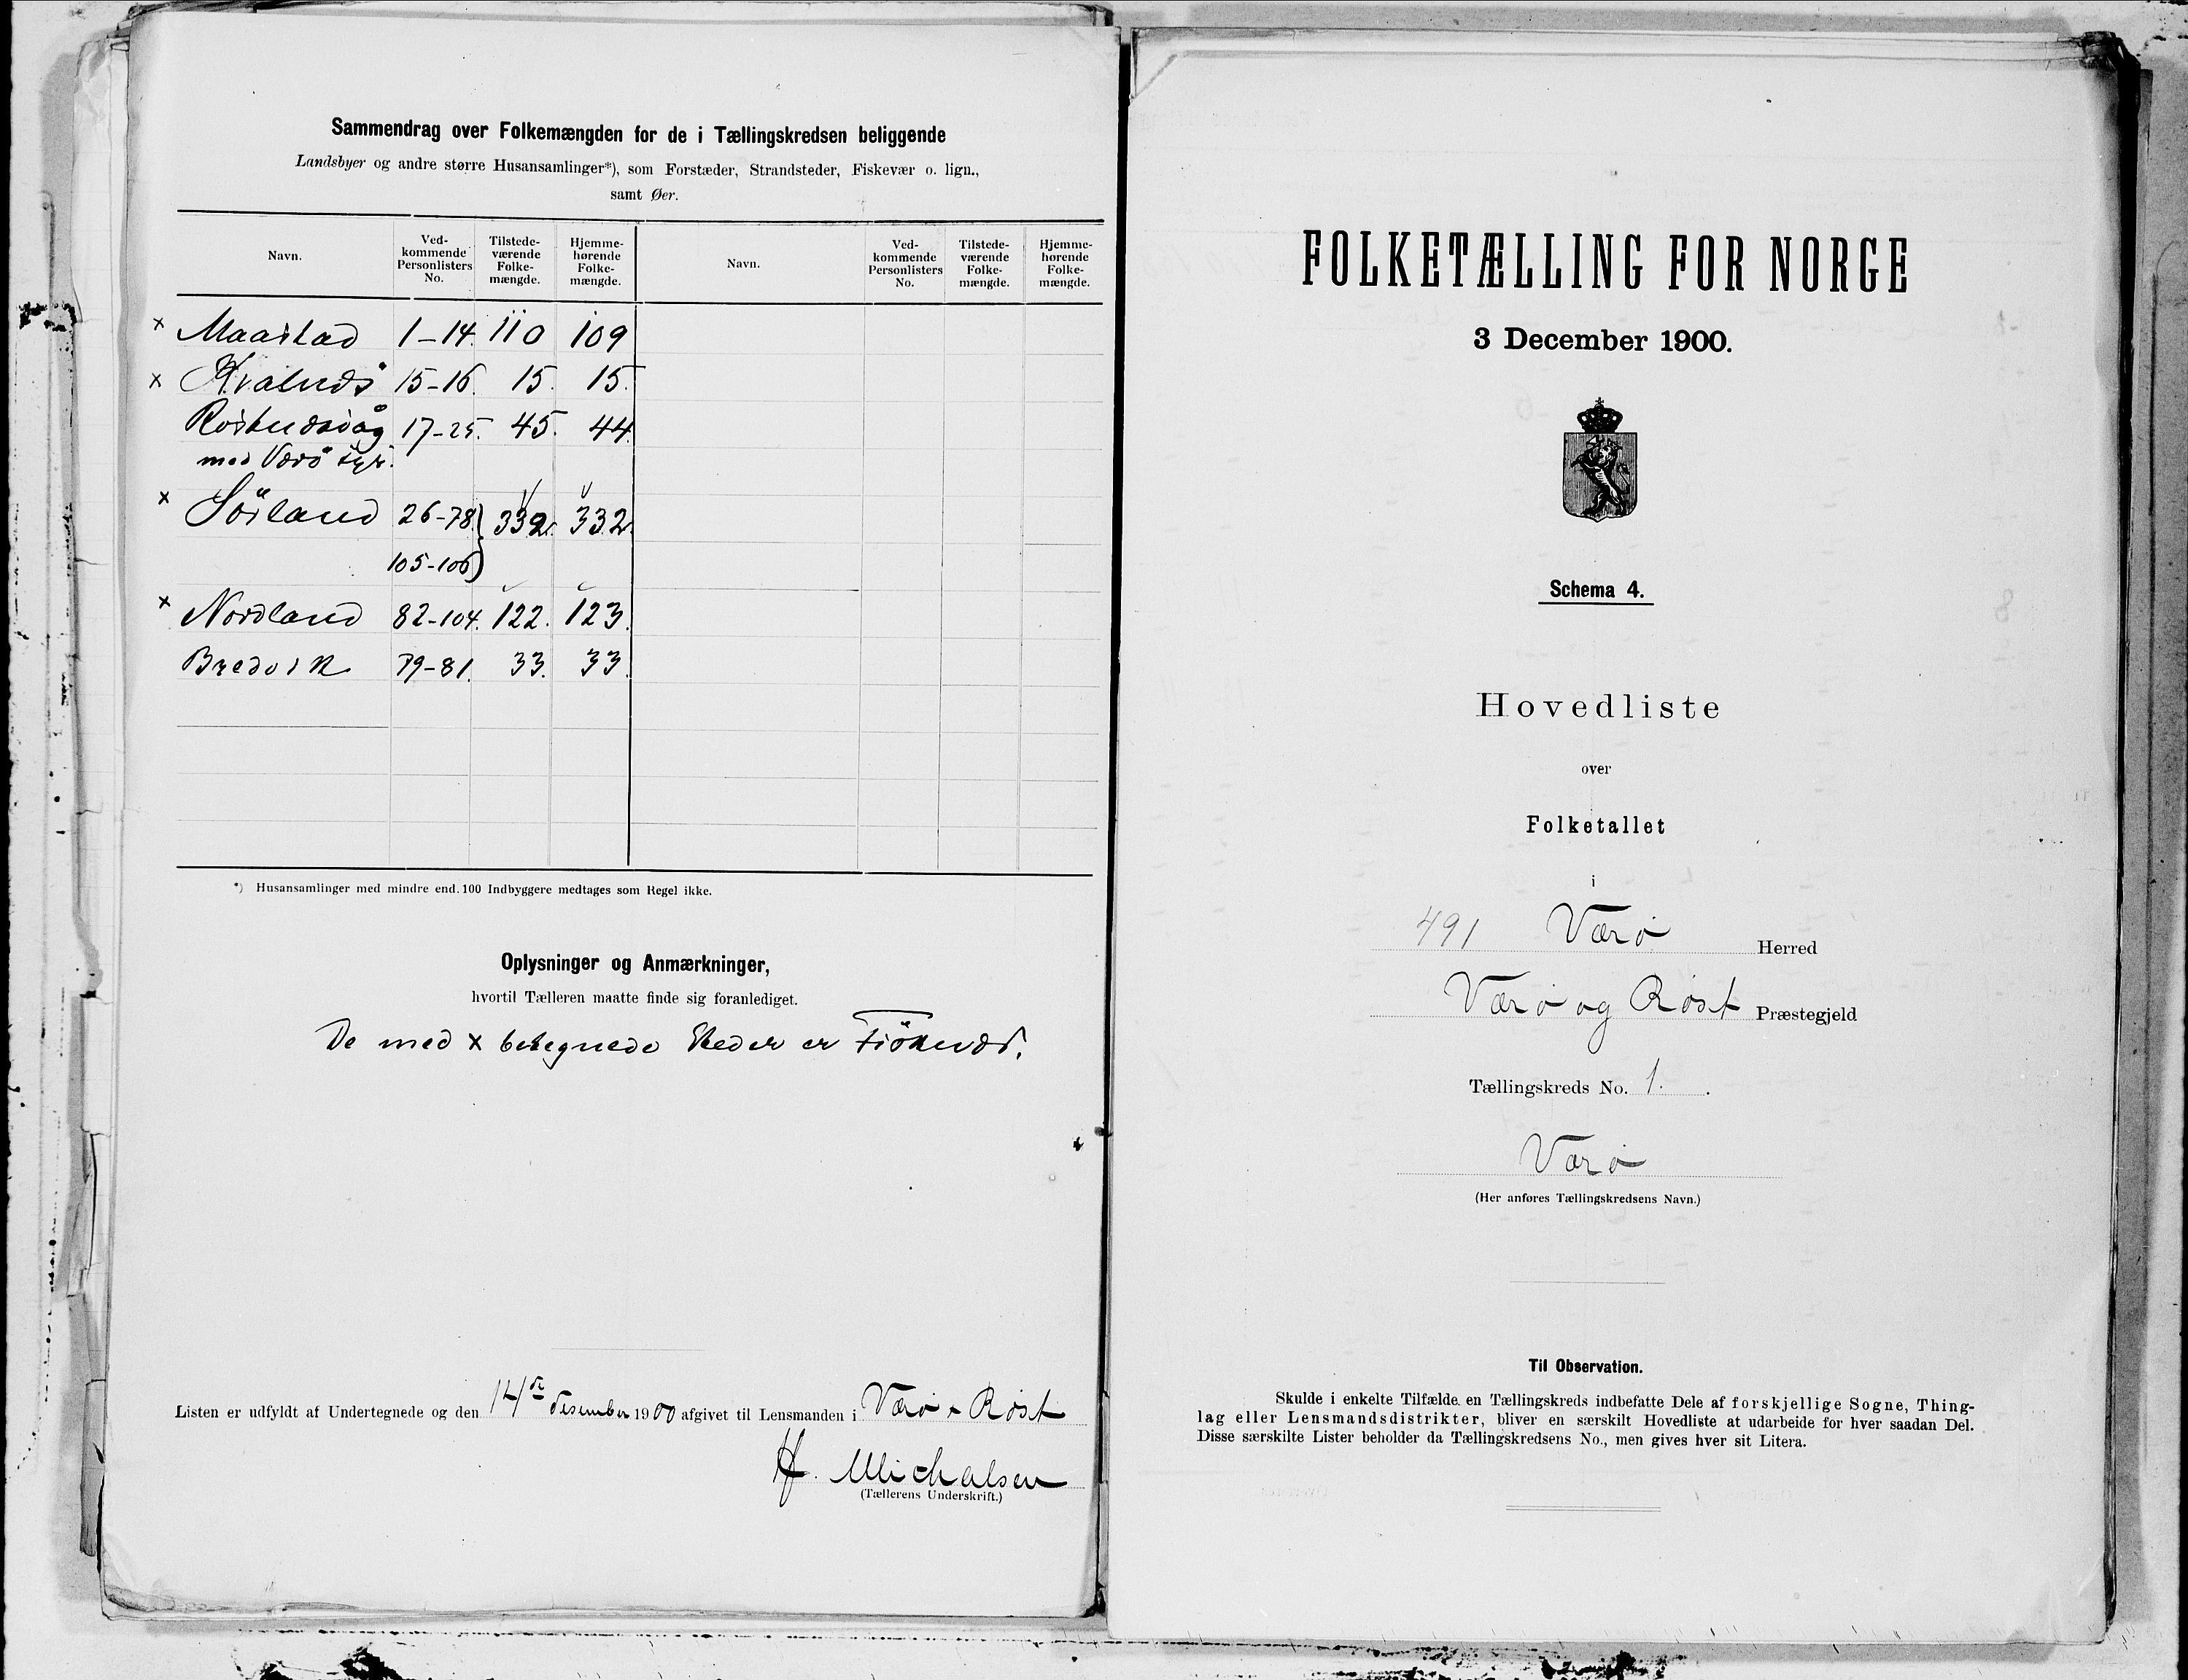 Sammendrag over Folkemængden for de i Tællingskredsen beliggende
Landsbyer og andre større Husansamlinger*), som Forstæder, Strandsteder, Fiskevær o. lign.,
samt Øer.
Navn. Ved-kommende Personlisters No. Tilstede-værende Folke-mængde. Hjemme-hørende Folke-mængde. Navn. Ved-kommende Personlisters No. Tilstede-værende Folke-mængde. Hjemme-hørende Folke-mængde.
x Maastad 1-14. 110 109
x Kvalnæs 15-16. 15. 15.
17-25. 45. 44.
med Værö fyr.
x Sörland 26-78 332. 332.
105-106
x Nordland 82-104. 122. 123.
Bredvik 79-81. 33. 33
*) Husansamlinger med mindre end 100 Indbyggere medtages som Regel ikke.
Oplysninger og Anmærkninger,
hvortil Tælleren maatte finde sig foranlediget.
De med x betegnede Steder er Fiskevær.
Listen er udfyldt af Undertegnede og den 14de desember 1900 afgivet til Lensmanden i Værø & Røst
H. Michalsen
(Tællerens Underskrift.)
FOLKETÆLLING FOR NORGE
3 December 1900.
Schema 4.
Hovedliste
over
Folketallet
i
491 Værø Herred
Værø og Røst Præstegjeld
Tællingskreds No. 1. .
Værø
(Her anføres Tællingskredsens Navn.)
Til Observation.
Skulde i enkelte Tilfælde en Tællingskreds indbefatte Dele af forskjellige Sogne, Thing-
lag eller Lensmandsdistrikter, bliver en særskilt Hovedliste at udarbeide for hver saadan Del.
Disse særskilte Lister beholder da Tællingskredsens No., men gives hver sit Litera.